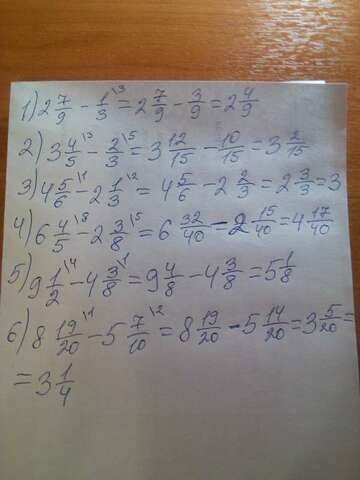 1) 2 7/9 - 1/3 \3 = 2 7/9 - 3/9 = 2 4/9
2) 3 4/5 \3 - 2/3 \5 = 3 12/15 - 10/15 = 3 2/15
3) 4 5/6 \1 - 2 1/3 \2 = 4 5/6 - 2 2/3 = 2 3/3 = 3
4) 6 4/5 \8 - 2 3/8 \5 = 6 32/40 - 2 15/40 = 4 17/40
5) 9 1/2 \4 - 4 3/8 \1 = 9 4/8 - 4 3/8 = 5 1/8
6) 8 19/20 \1 - 5 7/10 \2 = 8 19/20 - 5 14/20 = 3 5/20 =
= 3 1/4